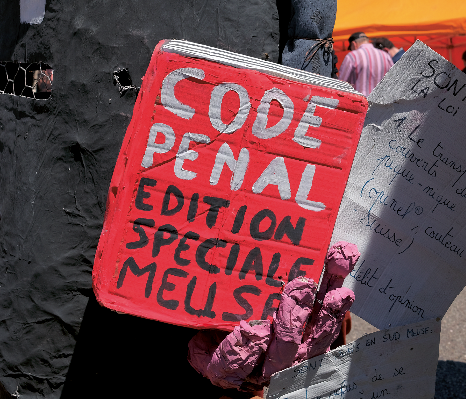 CODE
PENAL
EDITION
SPECIALE
MEUSE
SON
LA LOI
Le transp
couverts
pique-nique
(opinel® couteau
suisse)
d'opinion
EN SUD MEUSE: